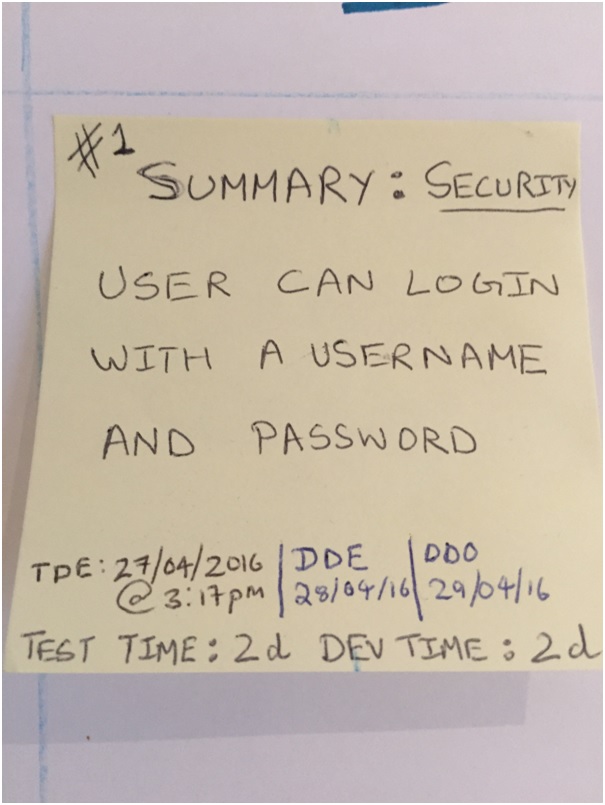 #1
SUMMARY: SECURITY
USER CAN LOGIN
WITH A USERNAME
AND PASSWORD
TDE: 27/04/2016 | DDE | DDO
@ 3:17pm | 28/04/16 | 29/04/16
TEST TIME: 2d DEV TIME: 2d